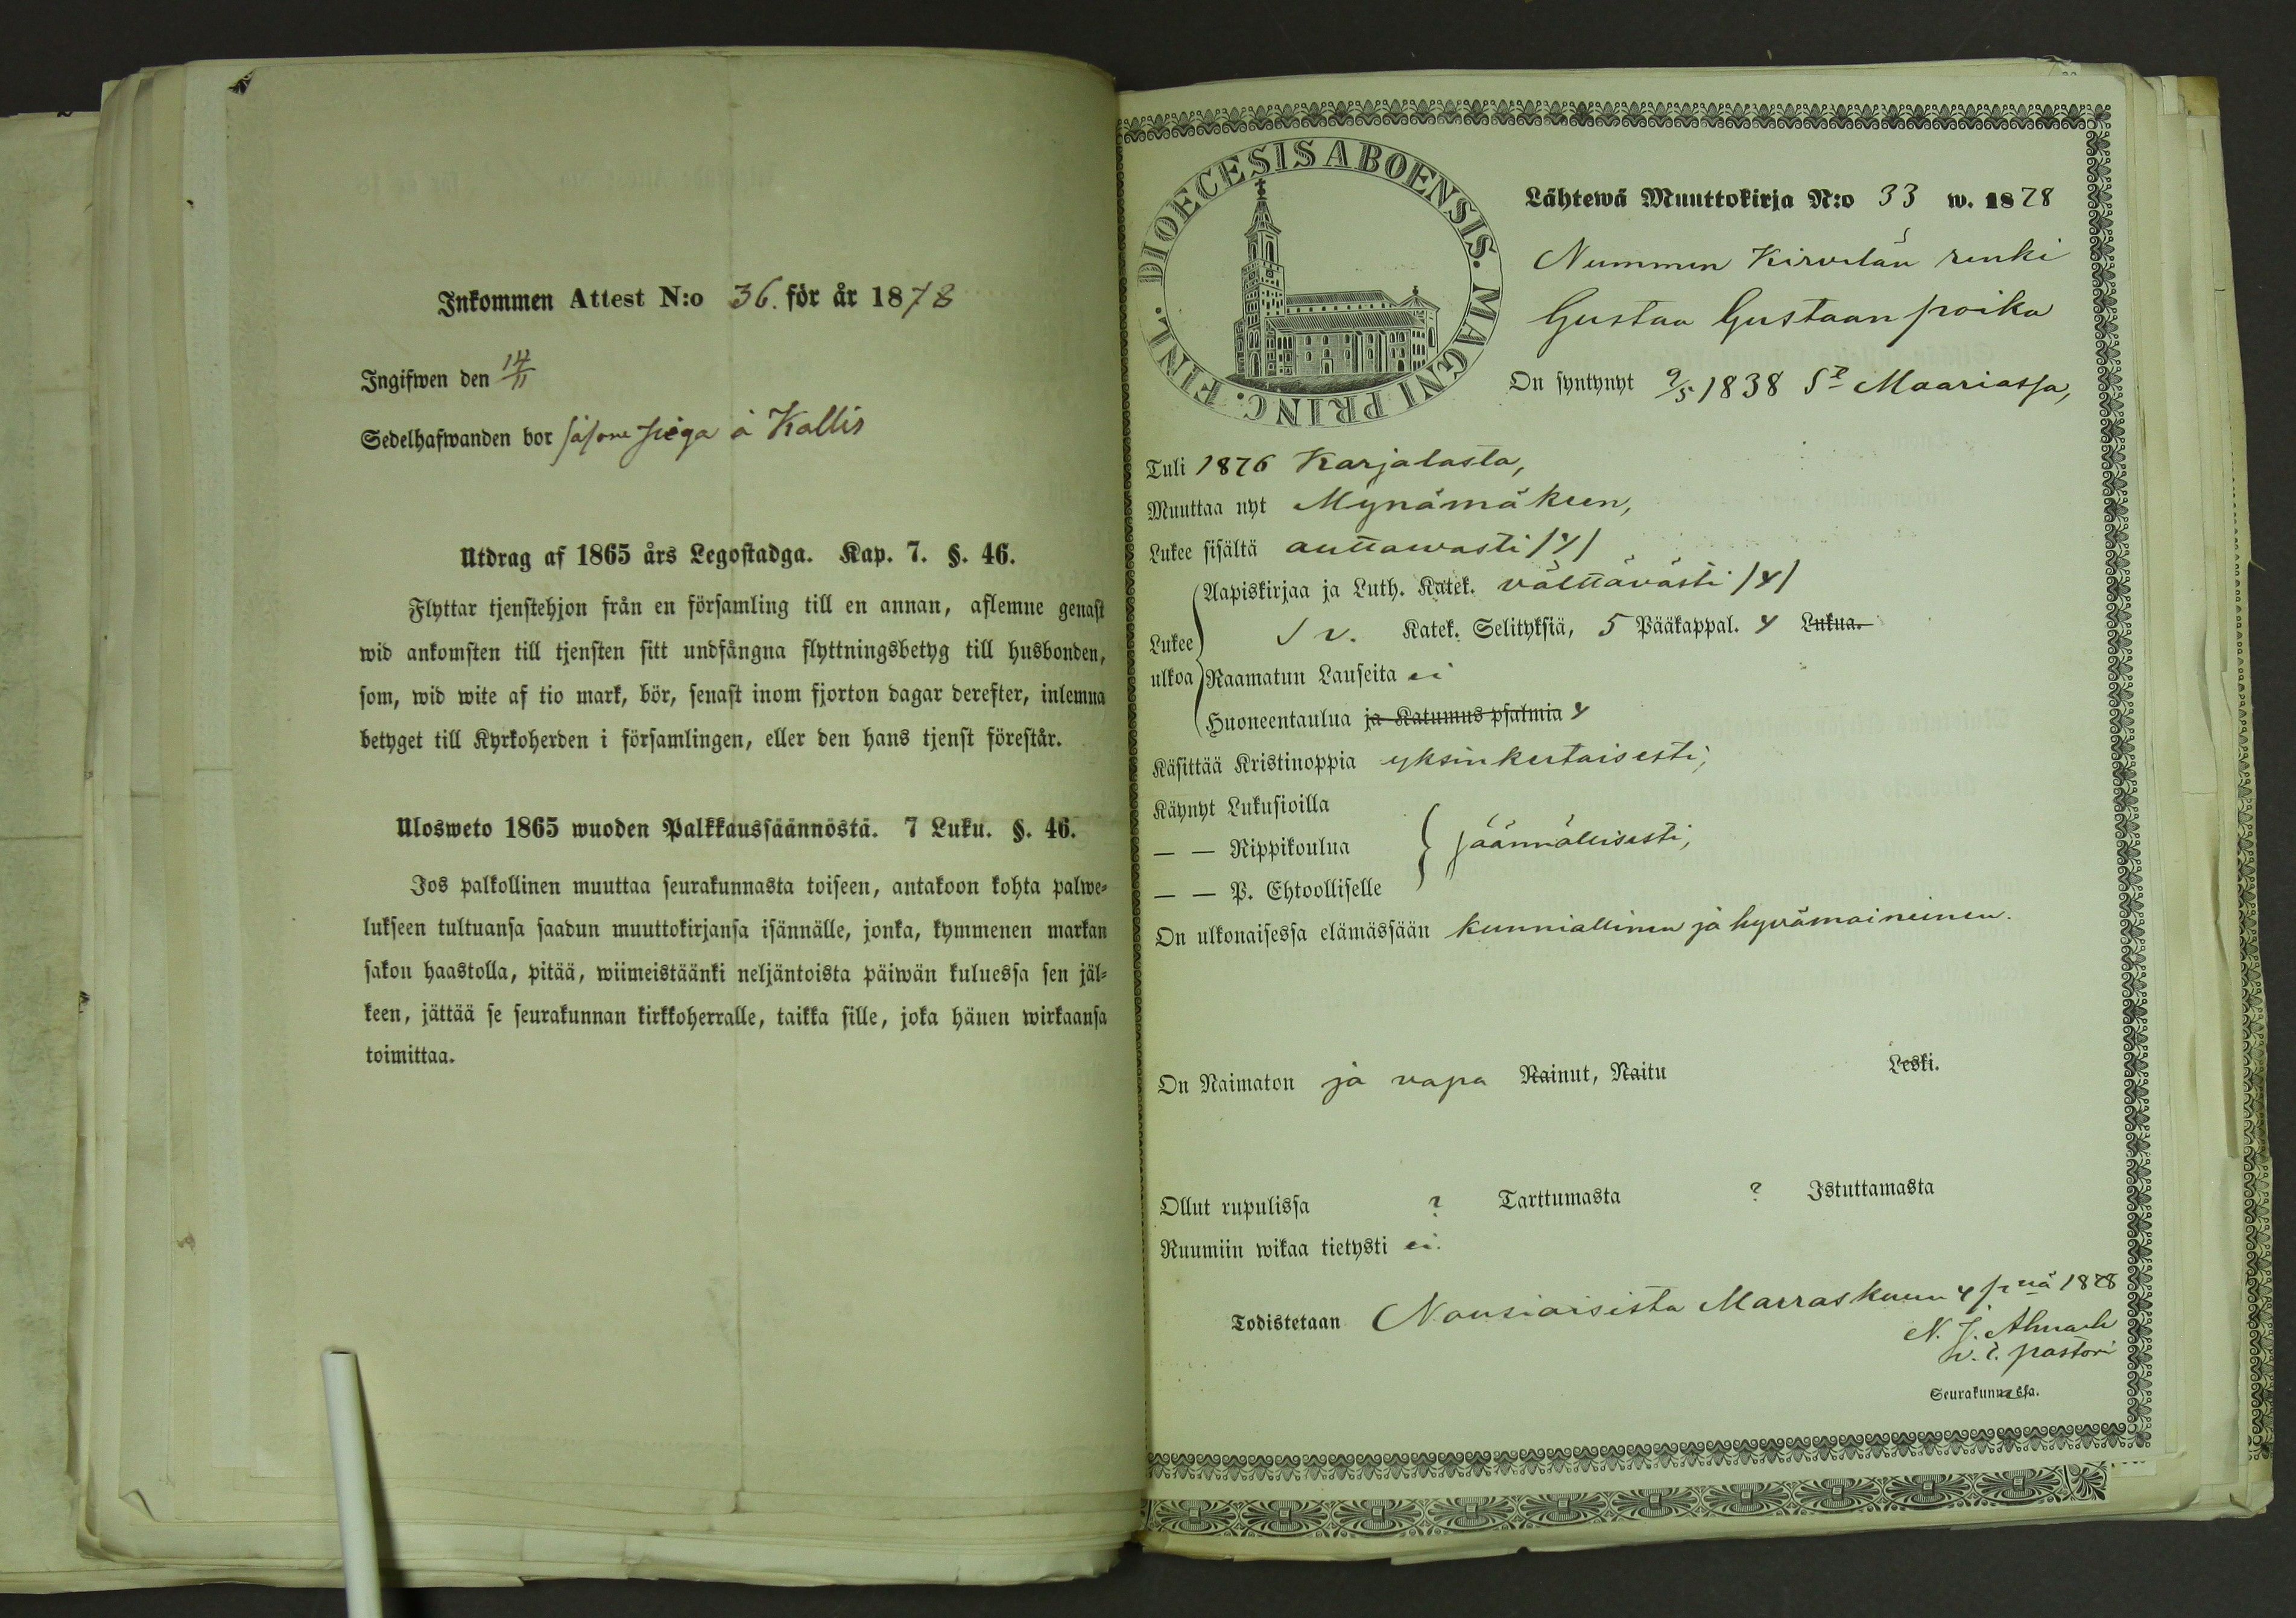 Inkommen Attest N:o 36. för år 1878
Ingifwen den 14/11
Sedelhafwanden bor såsom piga å Kallis
Utdrag af 1865 års Legostadga. Kap. 7. §. 46.
Flyttar tjenstehjon från en församling till en annan, aflemne genast
wid ankomsten till tjensten sitt undfångna flyttningsbetyg till husbonden,
som, wid wite af tio mark, bör, senast inom fjorton dagar derefter, inlemna
betyget till Kyrkoherden i församlingen, eller den hans tjenst förestår.
Ulosweto 1865 wuoden Palkkaussäännöstä. 7 Luku. §. 46.
Jos palkollinen muuttaa seurakunnasta toiseen, antakoon kohta palwe-
lukseen tultuansa saadun muuttokirjansa isännälle, jonka, kymmenen markan
sakon haastolla, pitää, wiimeistäänki neljäntoista päiwän kuluessa sen jäl-
keen, jättää se seurakunnan kirkkoherralle, taikka sille, joka hänen wirkaansa
toimittaa.
DIOECESIS ABOENSIS. MAGNI PRINC. FINL.
Lähtewä Muuttokirja N:o 33 w. 1878
Nummen Kirvelän renki
Gustaa Gustaanpoika
On syntynyt 9/5 1838 St Maariassa,
Tuli 1876 Karjalasta,
Muuttaa nyt Mynämäkeen,
Lukee sisältä auttawasti /4/
Lukee ulkoa
Aapiskirjaa ja Luth. Katek. välttävästi /4/
S v. Katek. Selityksiä, 5 Pääkappal. 4 Lukua.
Raamatun Lauseita ei
Huoneentaulua ja Katumus psalmia 4
Käsittää Kristinoppia yksinkertaisesti,
Käynyt Lukusioilla
— — Rippikoulua säännöllisesti,
— — P. Ehtoolliselle
On ulkonaisessa elämässään kunniallinen ja hyvämaineinen.
On Naimaton ja vapa Nainut, Naitu Leski.
Ollut rupulissa ? Tarttumasta ? Istuttamasta
Ruumiin wikaa tietysti ei.
Todistetaan Nousiaisista Marraskuun 4 pnä 1878
N. J.
v. t. pastori
Seurakunnassa.